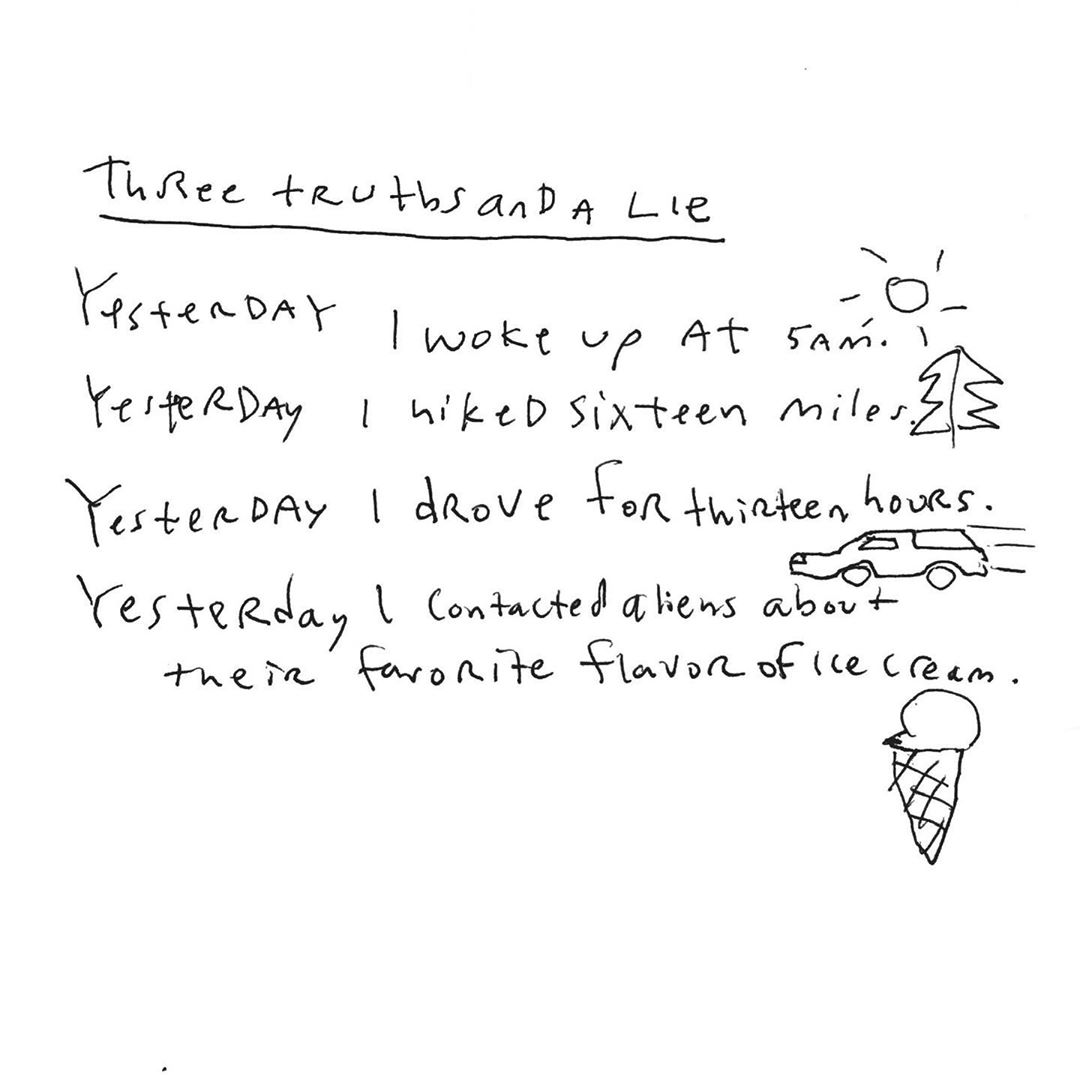 Three truths and a Lie
Yesterday I woke up At 5 AM.
Yesterday I hiked sixteen miles.
Yesterday I drove for thirteen hours.
Yesterday I contacted aliens about
their favorite flavor of ice cream.